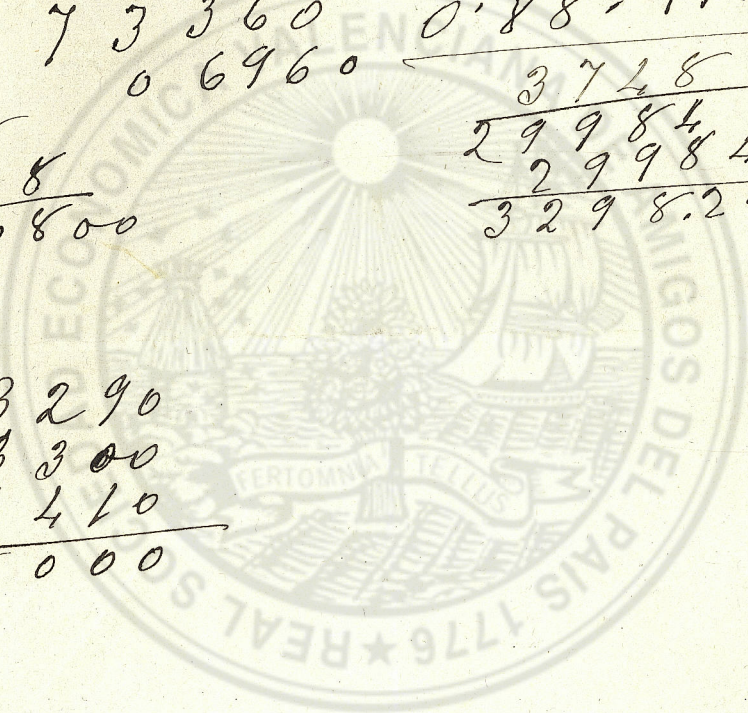 7 3 3 6 0
0 6 9 6 0
8
8 0 0
3 2 9 0
3 3 0 0
4 1 0
0 0 0
0.88
3 7 4 8
2 9 9 8 4
2 9 9 8 4
3 2 9 8.2
REAL SOCIEDAD ECONOMICA VALENCIANA DE AMIGOS DEL PAIS 1776
FERT OMNIA TELLUS